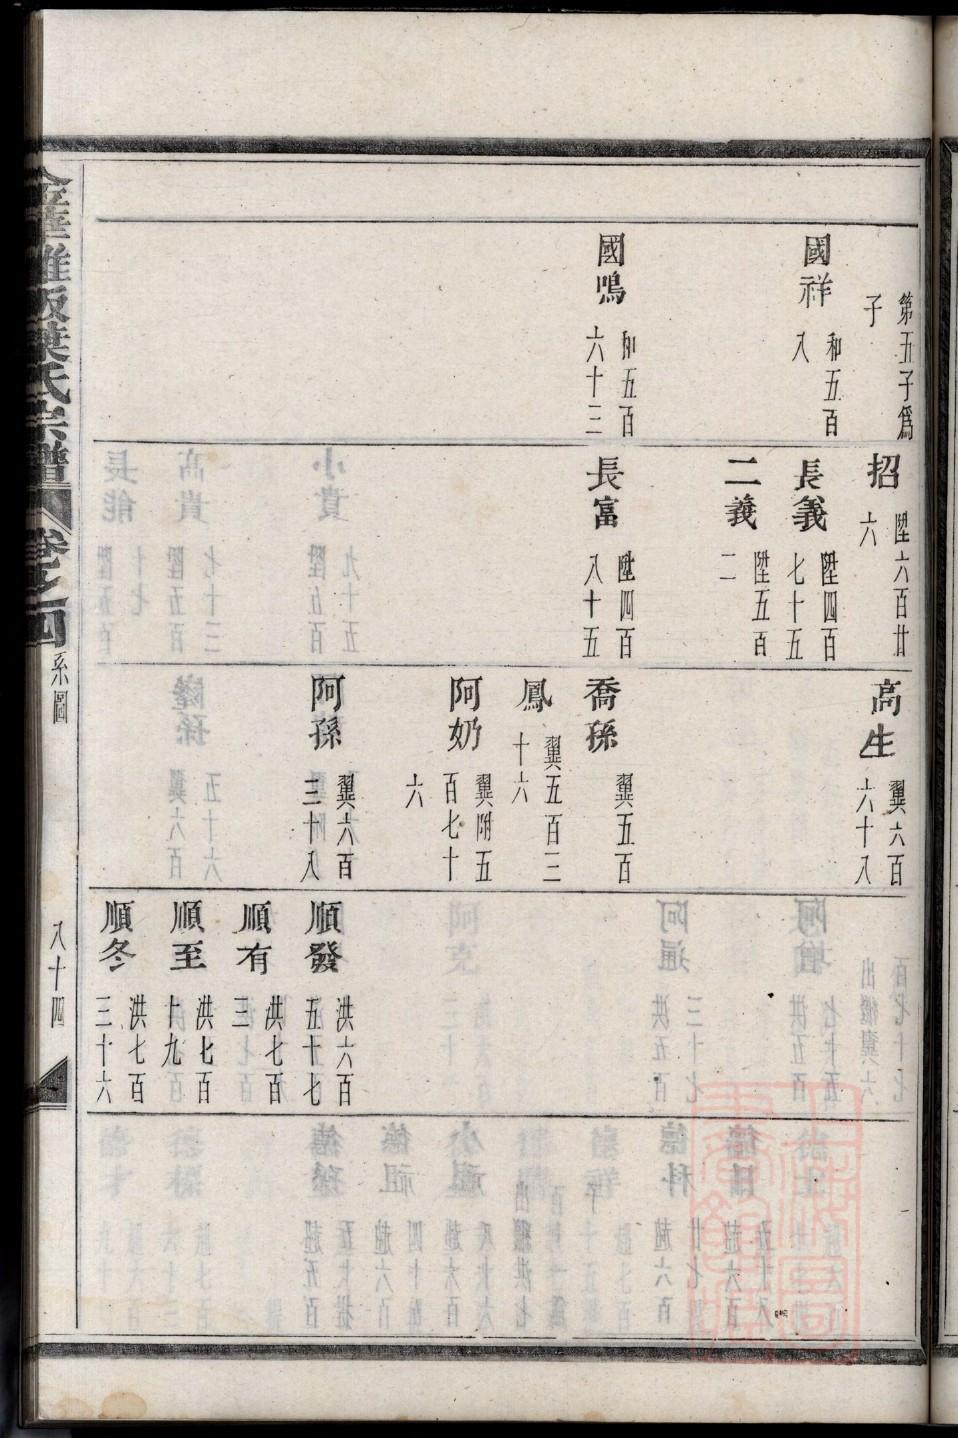 第五子爲
子
國祥
和五百
八
國鳴
和五百
六十三
招
陞六百廿
六
長義
陞四百
七十五
二義
陞五百
二
長富
陞四百
八十五
高生
翼六百
六十八
喬孫
翼五百
鳳
翼五百三
十六
阿奶
翼附五
百七十
六
阿孫
翼六百
三十八
順發
洪六百
五十七
順有
洪七百
三
順至
洪七百
十九
順冬
洪七百
三十六
葉氏宗譜
卷之四
系圖
八十四